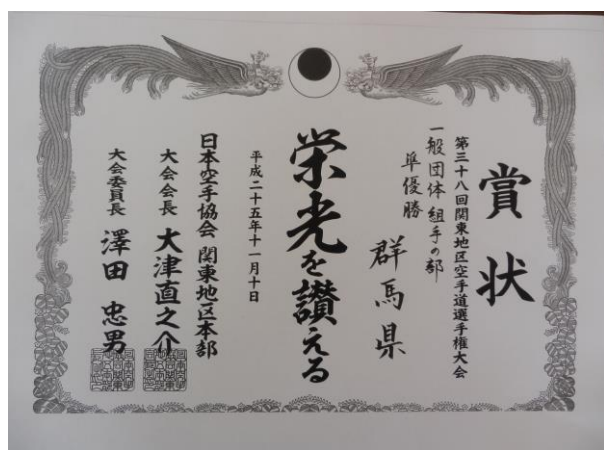 賞状
第三十八回関東地区空手道選手権大会
一般団体 組手の部
準優勝
群馬県
栄光を讃える
平成二十五年十一月十日
日本空手協会 関東地区本部
大会会長 大津直之介
大会委員長 澤田忠男